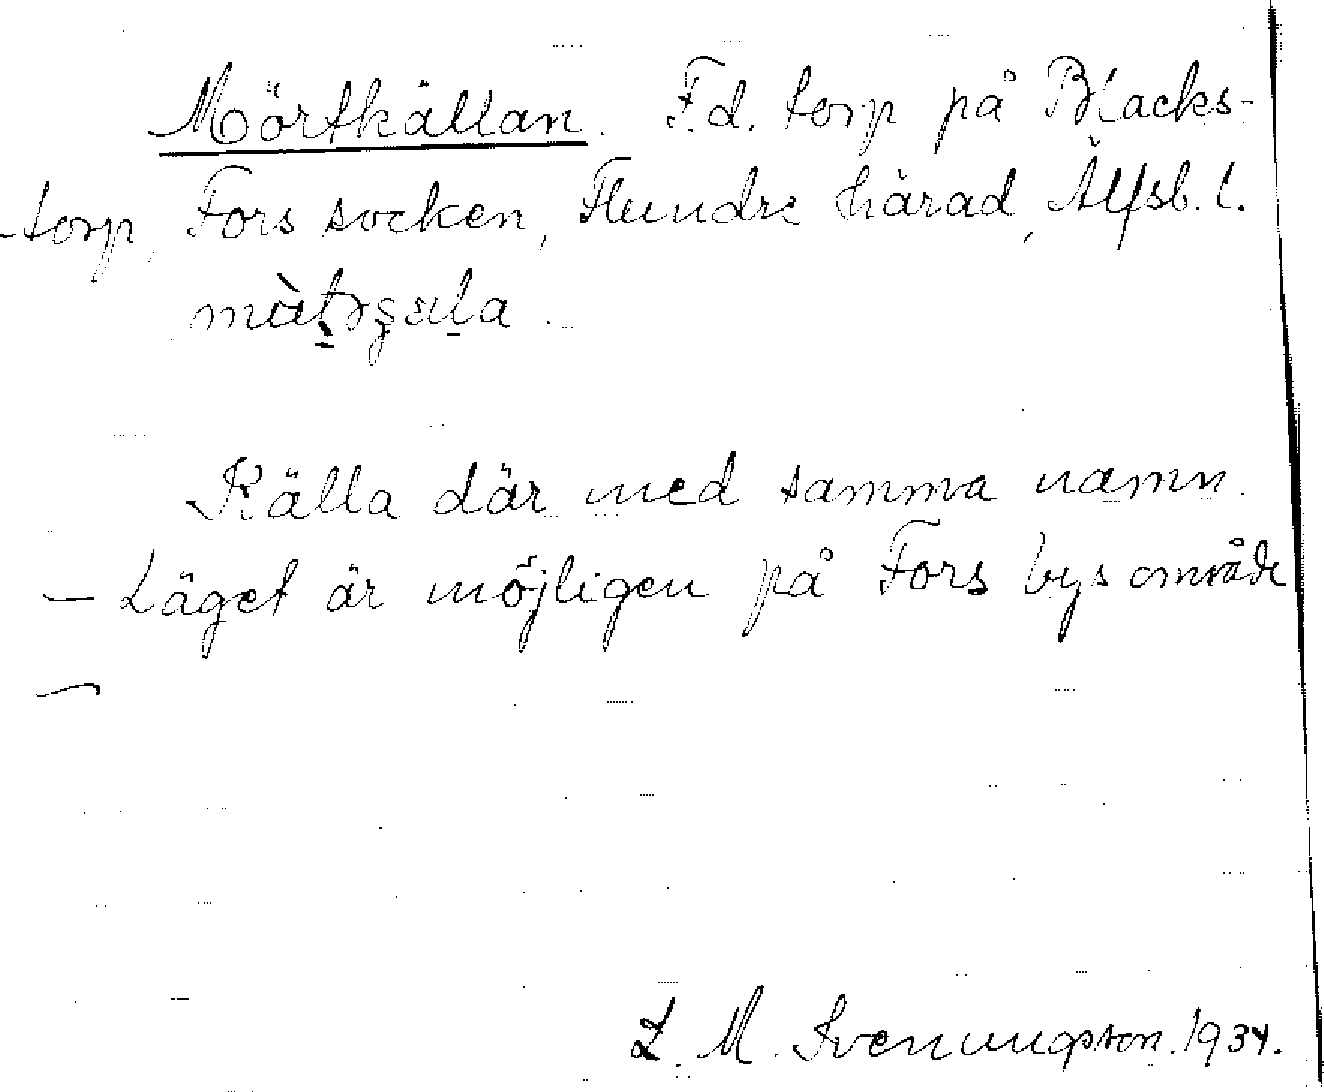 Mörtkällan. F.d. torp på Blacks-
torp, Fors socken, Flundre härad, Älfsb. l.
Källa där med samma namn.
– Läget är möjligen på Fors bys område
–
L. M. Svenungsson. 1934.